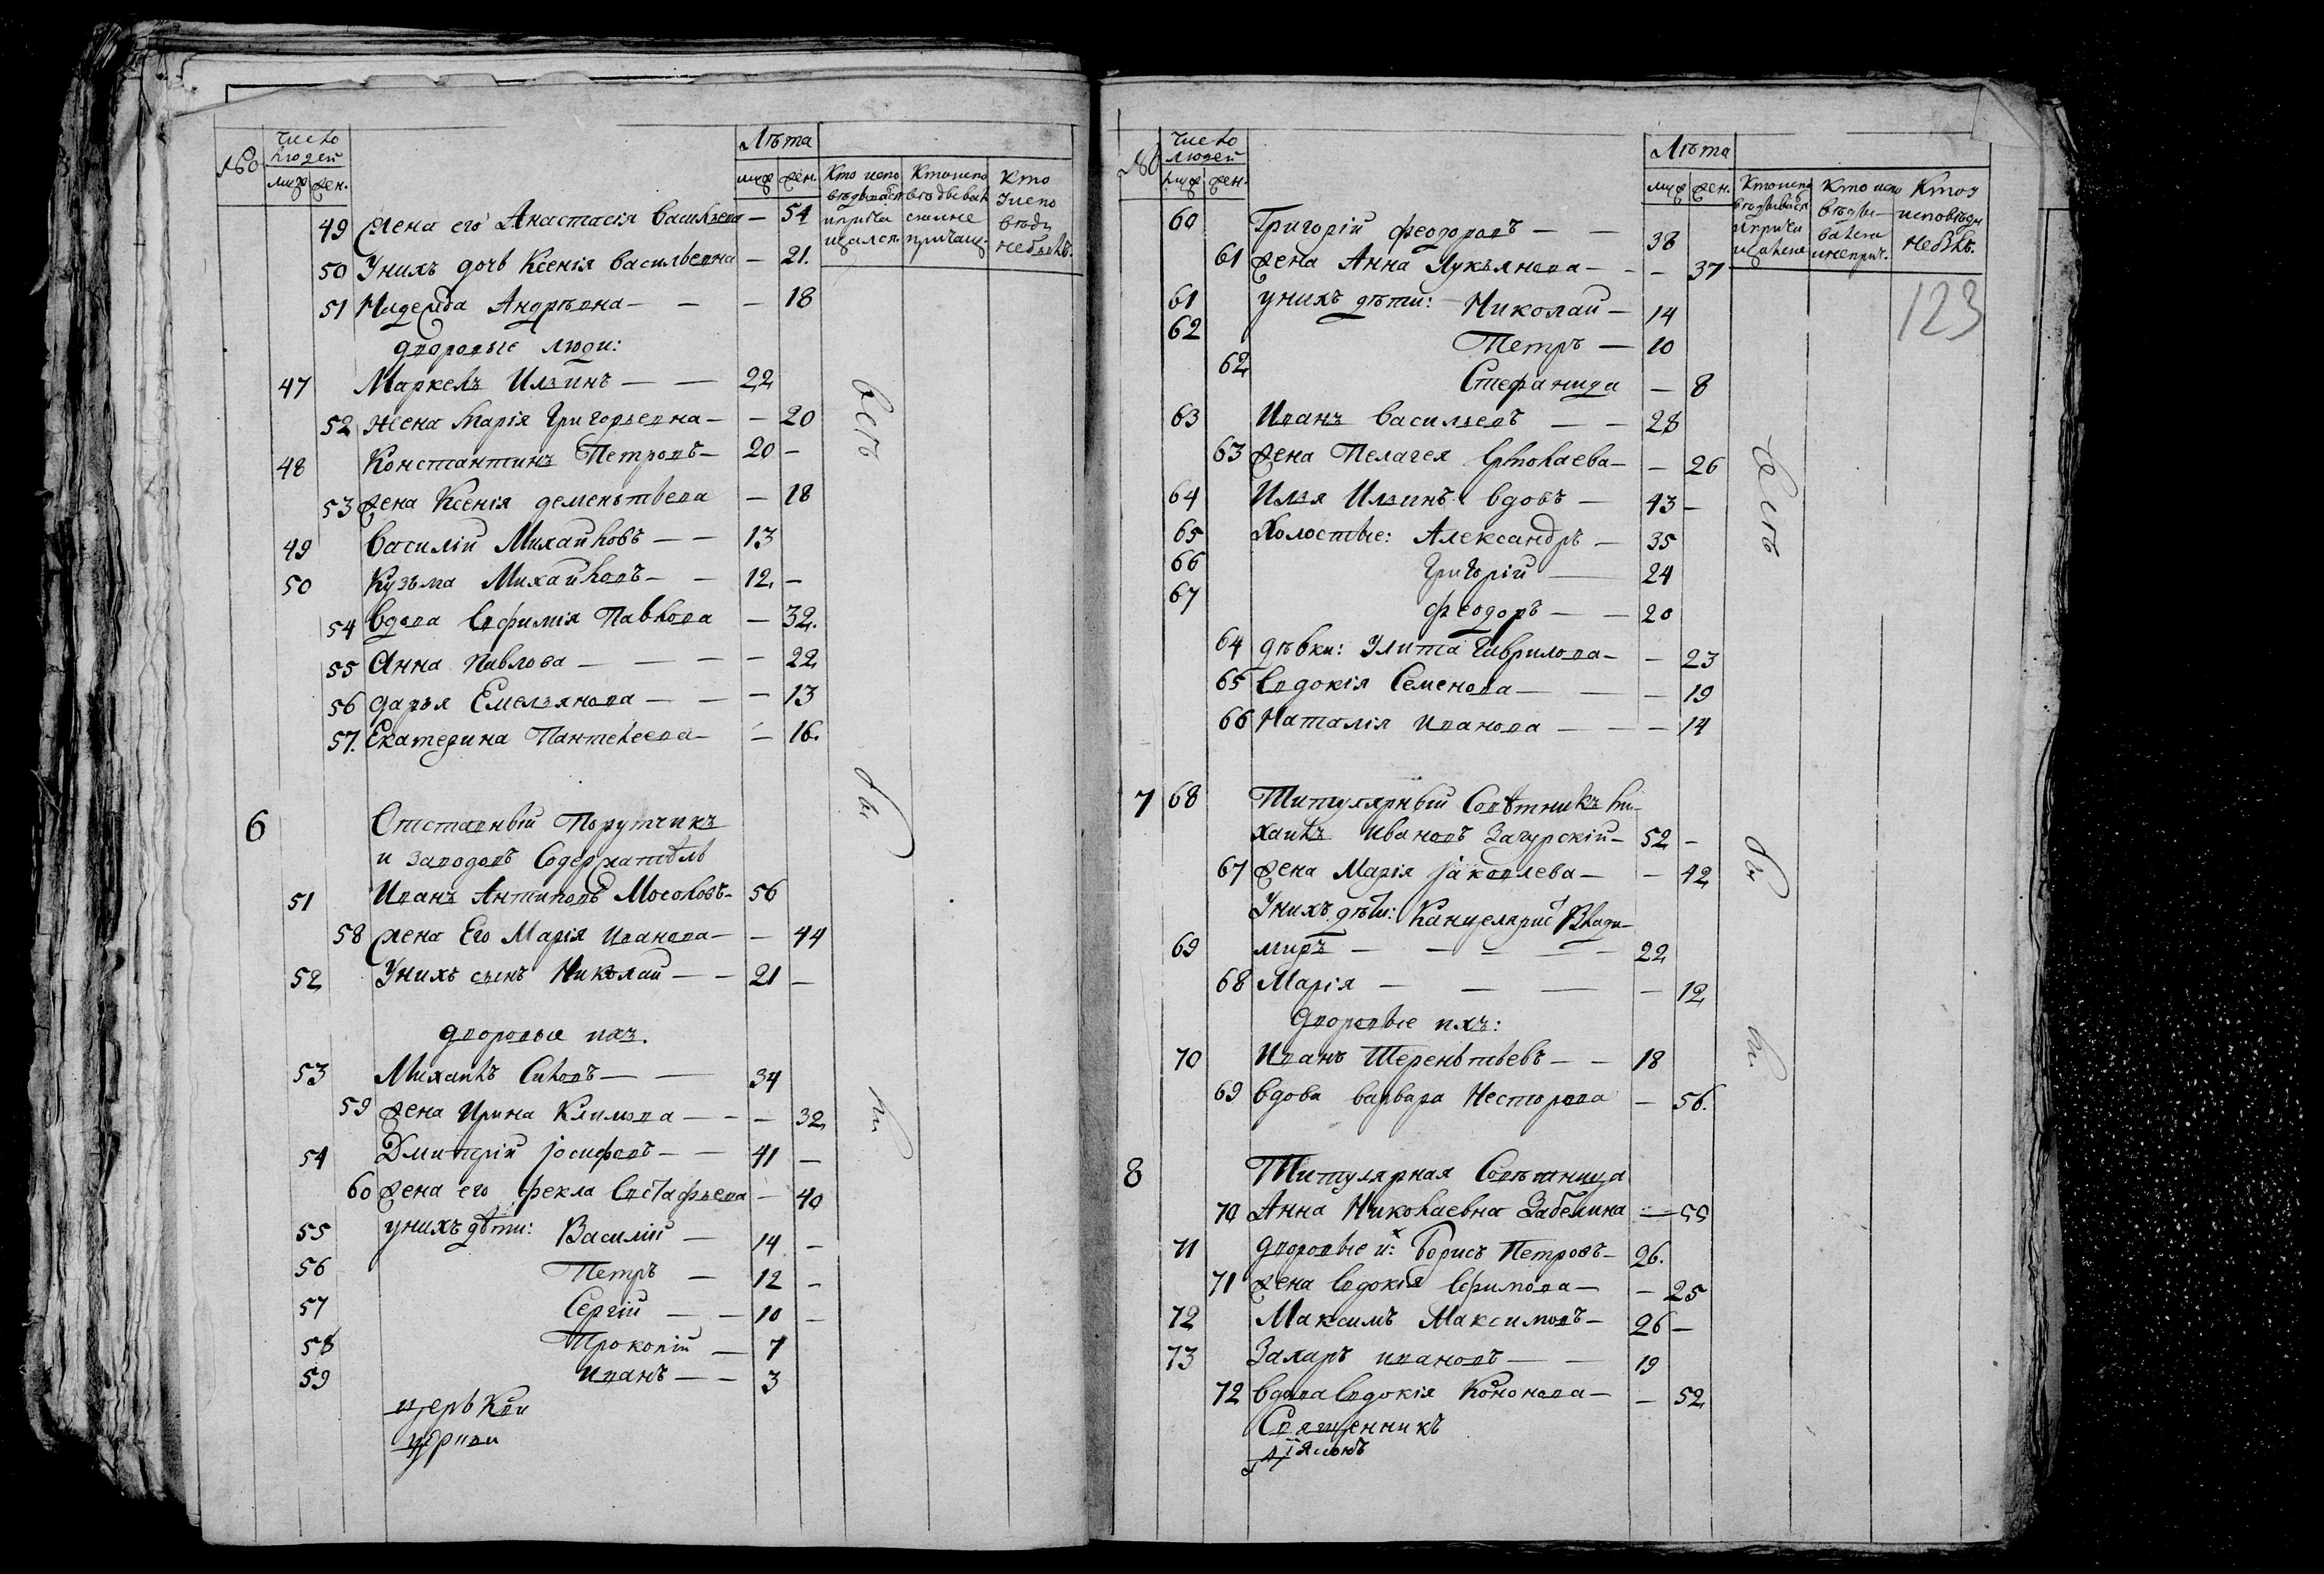 №
Число людей
муж жен.
Лѣта
муж жен.
Кто испо вѣдывался и прича щался.
Кто испо вѣдывал ся и не причащ.
Кто у испо вѣди небылъ.
49 жена его Анастасія Васильева — 54
50 Унихъ дочь Ксенія Васильевна — 21.
51 Надежда Андрѣвна — — — 18
дворовые люди:
47 Маркелъ Ильинъ — — 22
52 жена Марія Григорьевна — — 20
48 Константинъ Петровъ — 20 —
53 жена Ксенія Дементьева — 18
49 Василій Михайловъ — — 13
50 Кузьма Михайловъ — — 12. —
54 Вдова Евфимія Павлова — 32.
55 Анна Павлова — — — — 22
56 Дарья Емельянова — — — 13
57. Екатерина Пантелеева — — 16.
6 Отставный Порутчикъ
и Заводовъ Содержатель
51 Иванъ Антиповъ Мосоловъ — 56
58 жена Его Марія Иванова — — 44
52 Унихъ сынъ Николай — — 21 —
дворовые ихъ.
53 Михаилъ Силовъ — — 34
59 жена Ирина Климова — — — 32
54 Дмитрій Іосифовъ — — 41 —
60 жена его Фекла Евстафьева — 40
55 унихъ дѣти: Василій — 14 —
56 Петръ — 12 —
57 Сергій — — 10 —
58 Прокопій — 7
59 Иванъ — — 3
церькви
всѣ
бы
ли
№
Число людей
муж жен.
Лѣта
муж жен.
Кто испо вѣдывался и прича щался
Кто испо вѣды— вался и неприч.
Кто у исповѣди небылъ.
123
60 Григорій Феодоровъ — — 38
61 жена Анна Лукьянова — — — 37
61 унихъ дѣти: Николай — 14
62 Петръ — 10
62 Стефанида — 8
63 Иванъ Васильевъ — — 28
63 жена Пелагея Ермолаева — — 26
64 Илья Ильинъ вдовъ — 43 —
65 Холостые: Александръ — 35
66 Григорій — 24
67 Феодоръ — — 20
64 дѣвки: Улита Гаврилова — — 23
65 Евдокія Семенова — — — 19
66 Наталія Иванова — — — 14
7 68 Титулярный Совѣтникъ Ми—
хаилъ Ивановъ Загурскій — 52 —
67 жена Марія Іаковлева — — 42
Унихъ дѣти: Канцелярист Влади—
69 миръ — — — — — 22
68 Марія — — — — 12
дворовые ихъ:
70 Иванъ Терентьевъ — — 18
69 вдова Варвара Несторова — 56.
8 Титулярная Совѣтница
70 Анна Николаевна Забелина — 55
71 дворовые их: Борисъ Петровъ — 26.
71 жена Евдокія Ефимова — — 25
72 Максимъ Максимовъ — 26 —
73 Захаръ Ивановъ — — 19
72 вдова Евдокія Кононова — — 52
Священникъ
Діяконъ
всѣ
бы
ли